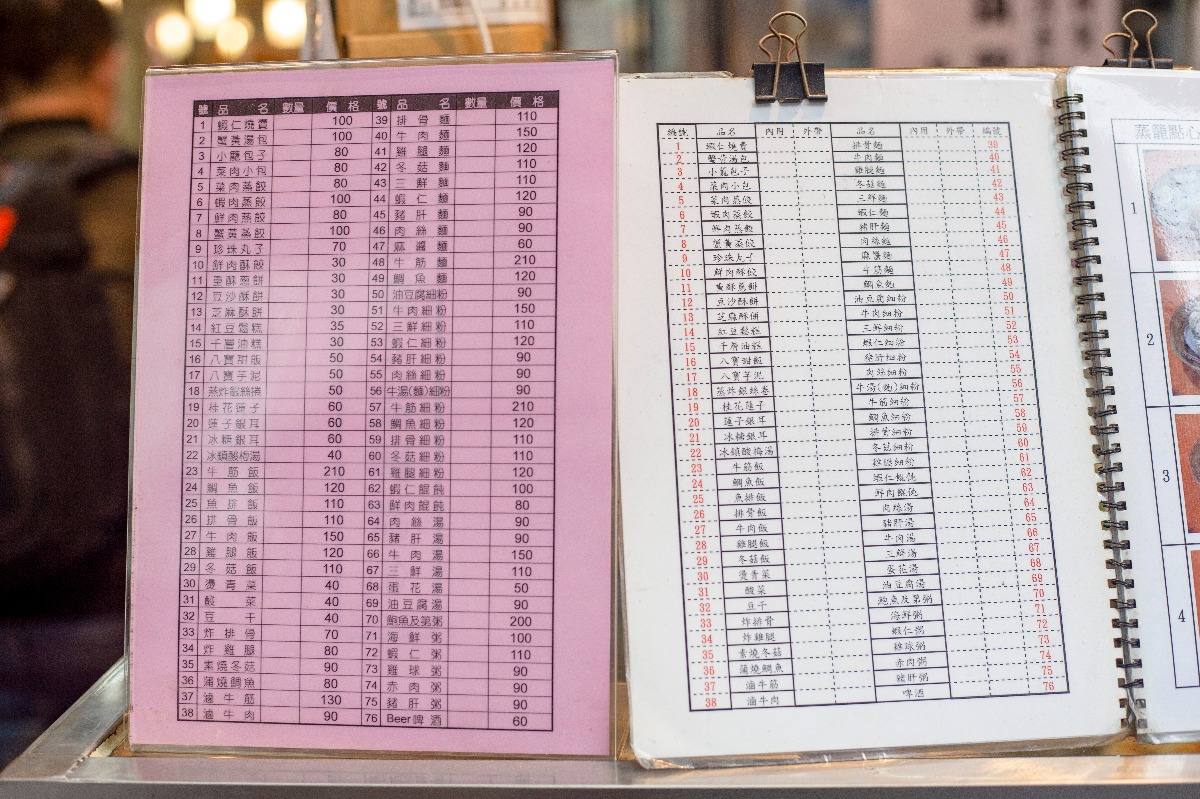 號 品名 數量 價格 號 品名 數量 價格
1 蝦仁燒賣 100 39 排骨麵 110
2 蟹黃湯包 100 40 牛肉麵 150
3 小籠包子 80 41 雞腿麵 120
4 菜肉小包 80 42 冬菇麵 110
5 菜肉蒸餃 80 43 三鮮麵 110
6 蝦肉蒸餃 100 44 蝦仁麵 120
7 鮮肉蒸餃 80 45 豬肝麵 90
8 蟹黃蒸餃 100 46 肉絲麵 90
9 珍珠丸子 70 47 麻醬麵 60
10 鮮肉酥餃 30 48 牛筋麵 210
11 重酥蔥餅 30 49 鯛魚麵 120
12 豆沙酥餅 30 50 油豆腐細粉 90
13 芝麻酥餅 30 51 牛肉細粉 150
14 紅豆鬆糕 35 52 三鮮細粉 110
15 千層油糕 30 53 蝦仁細粉 120
16 八寶甜飯 50 54 豬肝細粉 90
17 八寶芋泥 50 55 肉絲細粉 90
18 蒸炸銀絲捲 50 56 牛湯(麵)細粉 90
19 桂花蓮子 60 57 牛筋細粉 210
20 蓮子銀耳 60 58 鯛魚細粉 120
21 冰糖銀耳 60 59 排骨細粉 110
22 冰鎮酸梅湯 40 60 冬菇細粉 110
23 牛筋飯 210 61 雞腿細粉 120
24 鯛魚飯 120 62 蝦仁餛飩 100
25 魚排飯 110 63 鮮肉餛飩 80
26 排骨飯 110 64 肉絲湯 90
27 牛肉飯 150 65 豬肝湯 90
28 雞腿飯 120 66 牛肉湯 150
29 冬菇飯 110 67 三鮮湯 110
30 燙青菜 40 68 蛋花湯 50
31 酸菜 40 69 油豆腐湯 90
32 豆干 40 70 鮑魚及第粥 200
33 炸排骨 70 71 海鮮粥 100
34 炸雞腿 80 72 蝦仁粥 110
35 素燒冬菇 90 73 雞球粥 90
36 蒲燒鯛魚 80 74 赤肉粥 90
37 滷牛筋 130 75 豬肝粥 90
38 滷牛肉 90 76 Beer啤酒 60
編號 品名 內用 外帶 品名 內用 外帶 編號
1 蝦仁燒賣 排骨麵 39
2 蟹黃湯包 牛肉麵 40
3 小籠包子 雞腿麵 41
4 菜肉小包 冬菇麵 42
5 菜肉蒸餃 三鮮麵 43
6 蝦肉蒸餃 蝦仁麵 44
7 鮮肉蒸餃 豬肝麵 45
8 蟹黃蒸餃 肉絲麵 46
9 珍珠丸子 麻醬麵 47
10 鮮肉酥餃 牛筋麵 48
11 重酥蔥餅 鯛魚麵 49
12 豆沙酥餅 油豆腐細粉 50
13 芝麻酥餅 牛肉細粉 51
14 紅豆鬆糕 三鮮細粉 52
15 千層油糕 蝦仁細粉 53
16 八寶甜飯 豬肝細粉 54
17 八寶芋泥 肉絲細粉 55
18 蒸炸銀絲卷 牛湯(麵)細粉 56
19 桂花蓮子 牛筋細粉 57
20 蓮子銀耳 鯛魚細粉 58
21 冰糖銀耳 排骨細粉 59
22 冰鎮酸梅湯 冬菇細粉 60
23 牛筋飯 雞腿細粉 61
24 鯛魚飯 蝦仁餛飩 62
25 魚排飯 鮮肉餛飩 63
26 排骨飯 肉絲湯 64
27 牛肉飯 豬肝湯 65
28 雞腿飯 牛肉湯 66
29 冬菇飯 三鮮湯 67
30 燙青菜 蛋花湯 68
31 酸菜 油豆腐湯 69
32 豆干 鮑魚及第粥 70
33 炸排骨 海鮮粥 71
34 炸雞腿 蝦仁粥 72
35 素燒冬菇 雞球粥 73
36 蒲燒鯛魚 赤肉粥 74
37 滷牛筋 豬肝粥 75
38 滷牛肉 啤酒 76
蒸籠點心
1
2
3
4